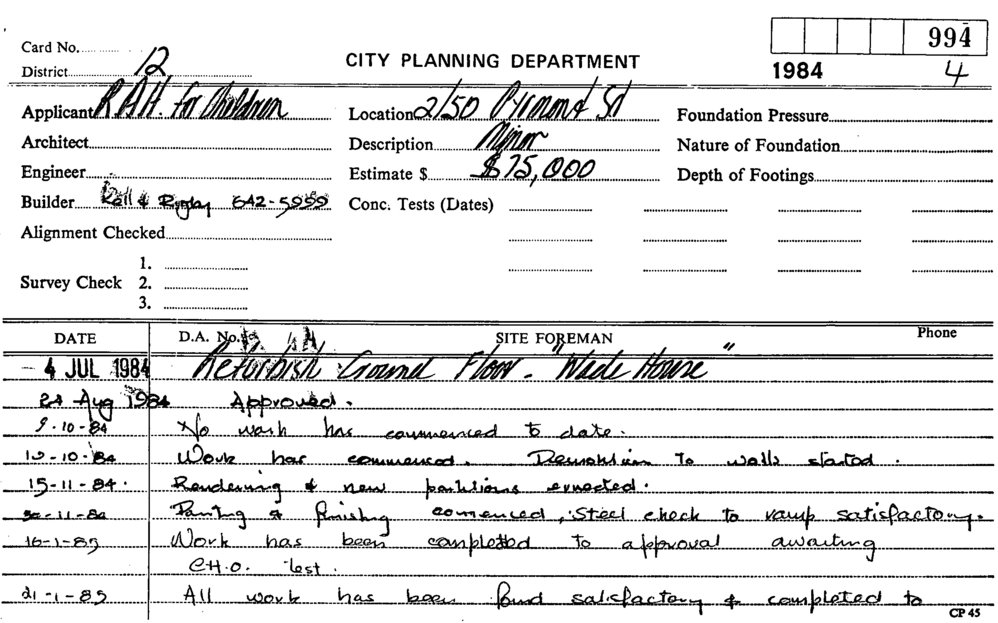 Card No.
12
District
CITY PLANNING DEPARTMENT
994
1984 4
Applicant R.A.H. for Children
Location 2/50 Pyrmont St
Foundation Pressure
Architect
Description Minor
Nature of Foundation
Engineer
Estimate $ $75,000
Depth of Footings
Builder Kell & Rigby 642-5999
Conc. Tests (Dates)
Alignment Checked
Survey Check 1.
2.
3.
DATE D.A. No. SITE FOREMAN Phone
- 4 JUL 1984 Refurbish Ground Floor - "Wade House"
Aug 1984 Approved.
9-10-84 No work has commenced to date.
10-10-84 Work has commenced. Demolition to walls started.
15-11-84. Rendering & new partitions erected.
30-11-84 Panting & finishing comenced, Steel check to ramp satisfactory.
16-1-85 Work has been completed to approval awaiting
C.H.O. Test.
21-1-85 All work has been found satisfactory & completed to
CP 45